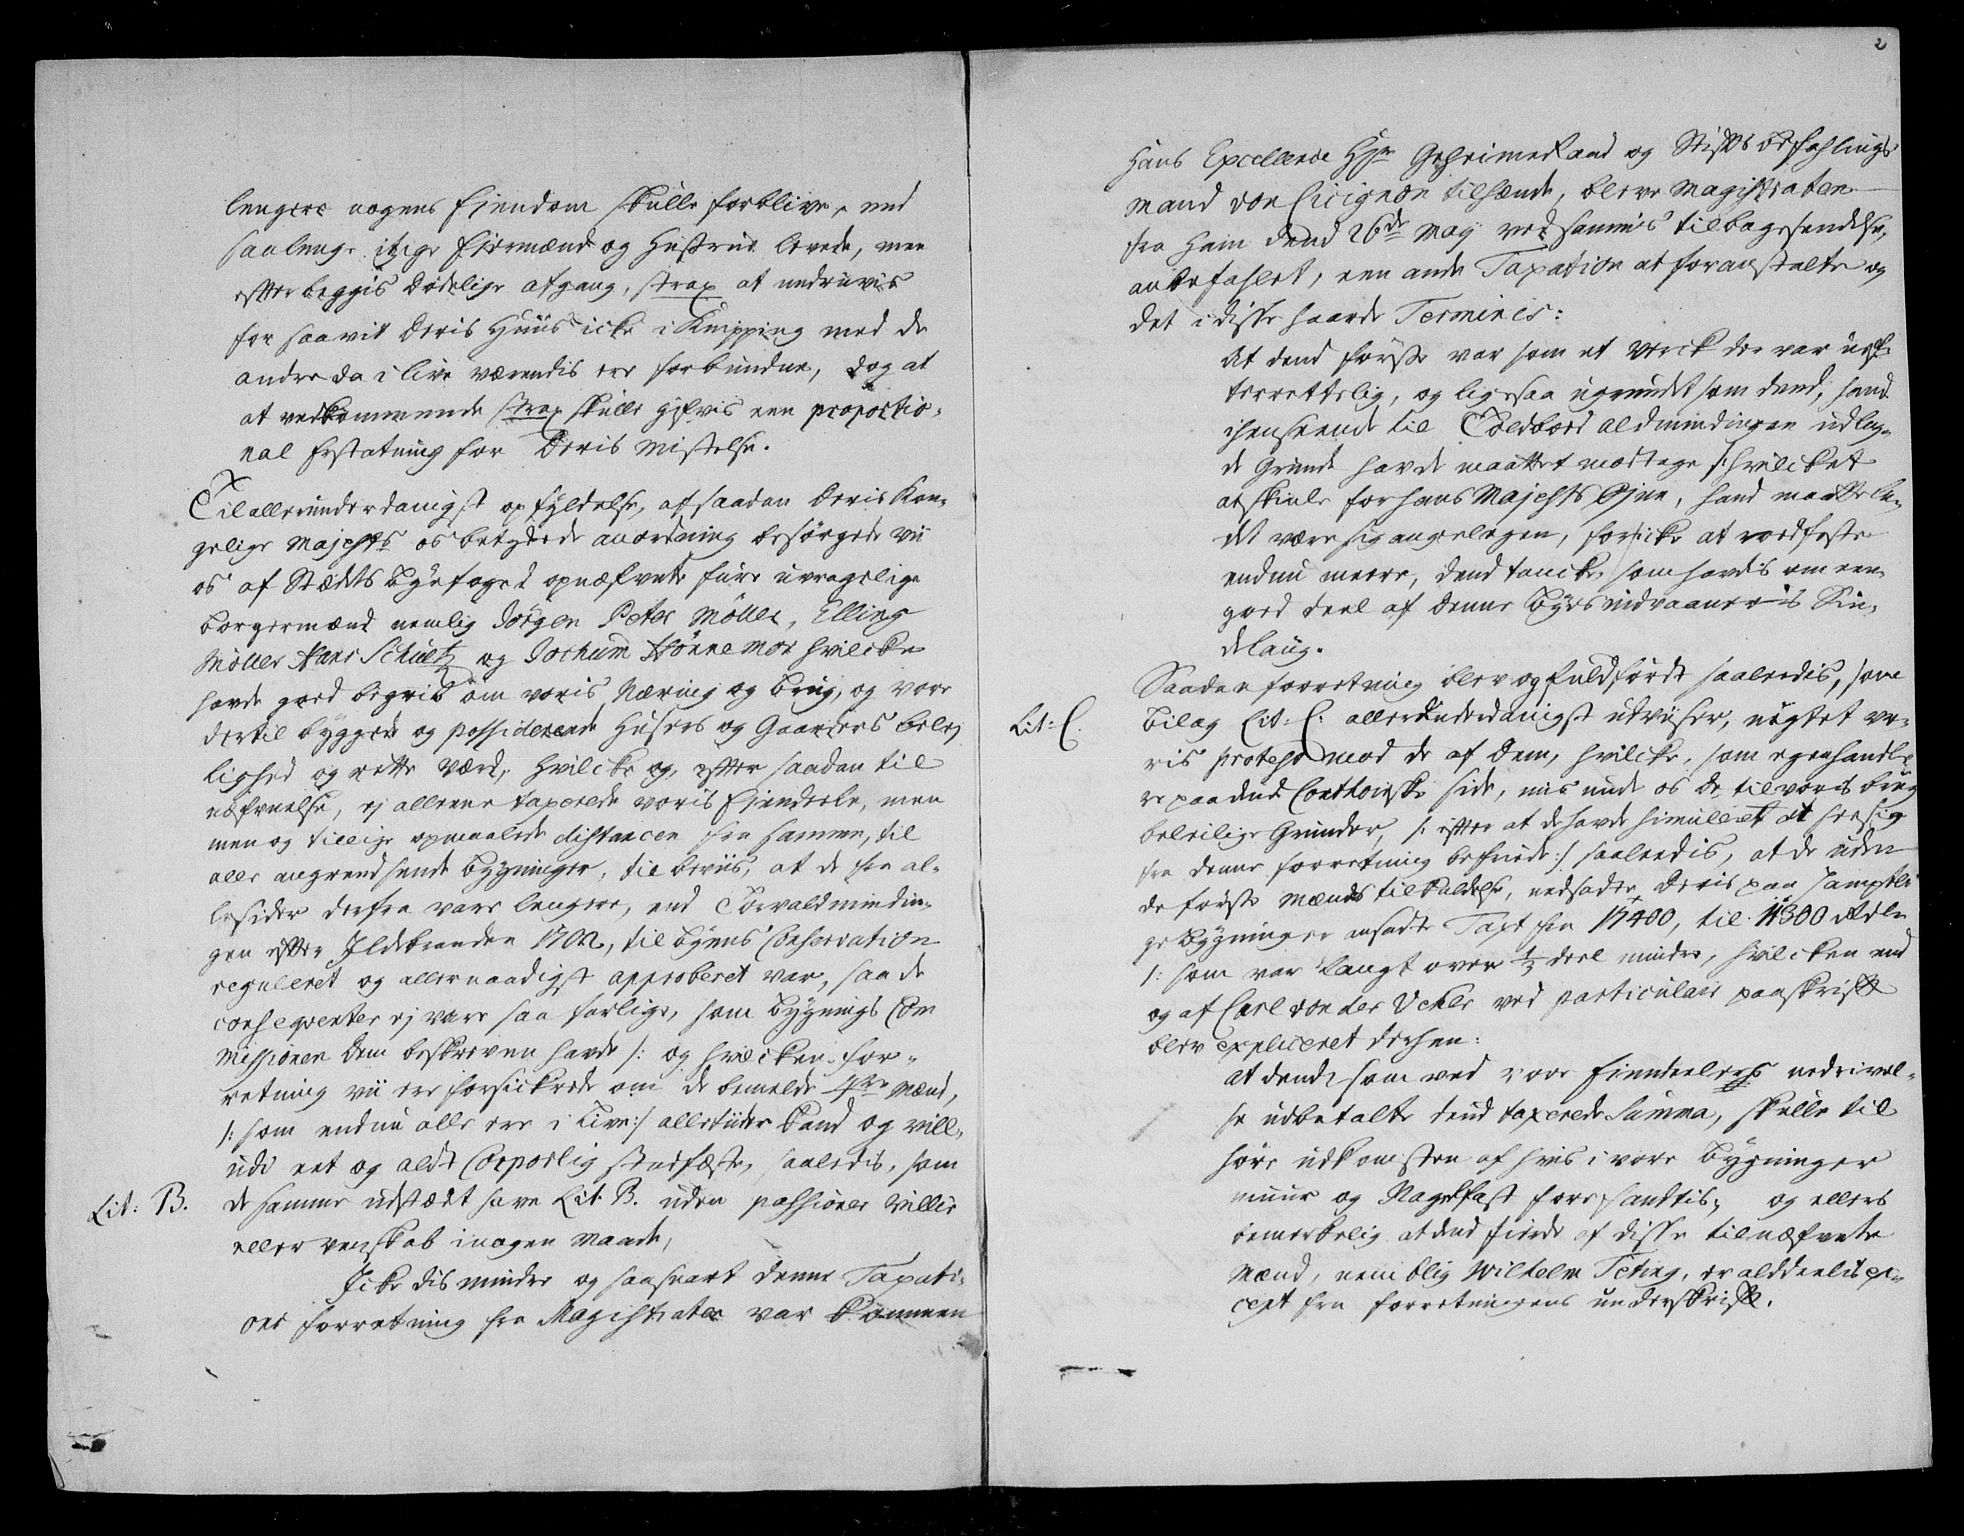 lengere nogens Eiendom skulle forblive, end
saalenge itzige Eiermænd og Hustrue levede, men
efter beggis Dødelige afgang, strax at nedrives
for saavit Deris Huus icke i Knipping med de
andre da i live værendis ere forbundne, dog at
at vedkommende strax skulle gifvis een proportio-
nal Erstatning for Deris Mistelse.
Til allerunderdanigst opfyldelse, af saadan Deris Kon-
gelige Majests os betydede anordning besørgede vii
os af Stædets Byefoged opnæfnete fiire uvragelige
Borgermænd nemlig Jörgen Peter Möller, Elling
Möller Hans Schultz og Jochum Hönnemor hvilcke
havde goed begrib om voris Næring og Brug, og vore
dertil byggede og possiderende Huusers og Gaarders beley
lighed og rette Værd, Hvilcke og, efter saadan til
næfnelse, ej alleene taxerede voris Eiendeele, men
men og tillige opmaalede distancen fra samme, til
alle angrendsende Bygninger, til beviis, at de fra al-
le sider derfra vare lengere, end Torvaldmindin-
gen efter Ildebranden 1702, til Byens Conservation
reguleret og allernaadigst approberet var, saa de
conseqventer ej vare saa farlige, som Bygnings Com
missionen dem beskreven havde /: og hvilcken for-
retning vii ere forsickrede om de bemelte 4re Mænd,
/: som endnu alle ere i Live :/ alletiider kand og vill,
udi eet og aldt Corporlig stadfæste, saaledis, som
Lit: B. de samme udstædt have Lit. B. uden passioner villie
eller venskab i nogen Maade,
Icke dis minder og saasnart denne Taxati-
ons forretning fra Magistraten var kommen
2
Hans Excellence Hr Geheimeraad og Stiftsbefahlings
mand von Cicignon tilhænde, bleve Magistraten
fra Ham dend 26de Maj ved sammes tilbagesendelse,
anbefahlet, een anden Taxation at foranstalte og
det i disse haarde Terminis:
At dend første var som et Verck der var uef-
terrettelig, og ligesaa ugrundet som dend, hand
i henseende til Toldboed aldmindingen udlag-
de Grunde havde maattet modtage /: hvilcket
at skiule for hans Majests Øjne, hand maatte la-
det være sig angelegen, for icke at roedfeste
endnu meere, dend tancke, som havdes om een
goed deel af denne Byes indvaaneris Sin-
delaug.
Saadan forretning blev og fuldført saaledis, som
Lit: C. Bilag Lit: C. allerunderdanigst udviser, uagtet vo-
ris protest mod de af Dem, hvilcke, som egenhandle
re paa dend Conthoirske side, misunde os de til voris brug
beleilige Grunder, /: efter at de havde simuleret at see sig
fra denne forretning befriede :/ saaledis, at de uden
de første Mænds tilkaldelse, nedsadte deris paa samptli
ge Bygninger ansadte Taxt fra 17400, til 11300 Rdlr
/: som var langt over 1/3 deel minder, hvilcken end
og af Carl von der Vekle ved particulair paaskrift
blev expliceret derhen:
at dend, som ved vore Eiendeelers nedrivel-
se udbetalte dend taxerede Summa, skulle til
høre udkomsten af hvis i vore Bygninger
muur og Nagelfast forefandtis, og ellers
bemerkelig at dend fierde af disse tilnæfnete
Mænd, nemblig Wilhelm Teting, er alddeelis ex-
cept fra forretningens underskrift.